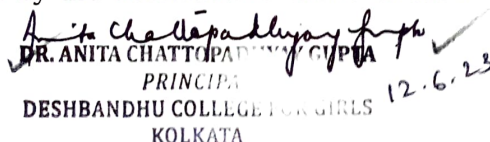 Anita Chattopadhyay Gupta
DR. ANITA CHATTOPADHYAY GUPTA
PRINCIPA
DESHBANDHU COLLEGE FOR GIRLS
12.6.23
KOLKATA